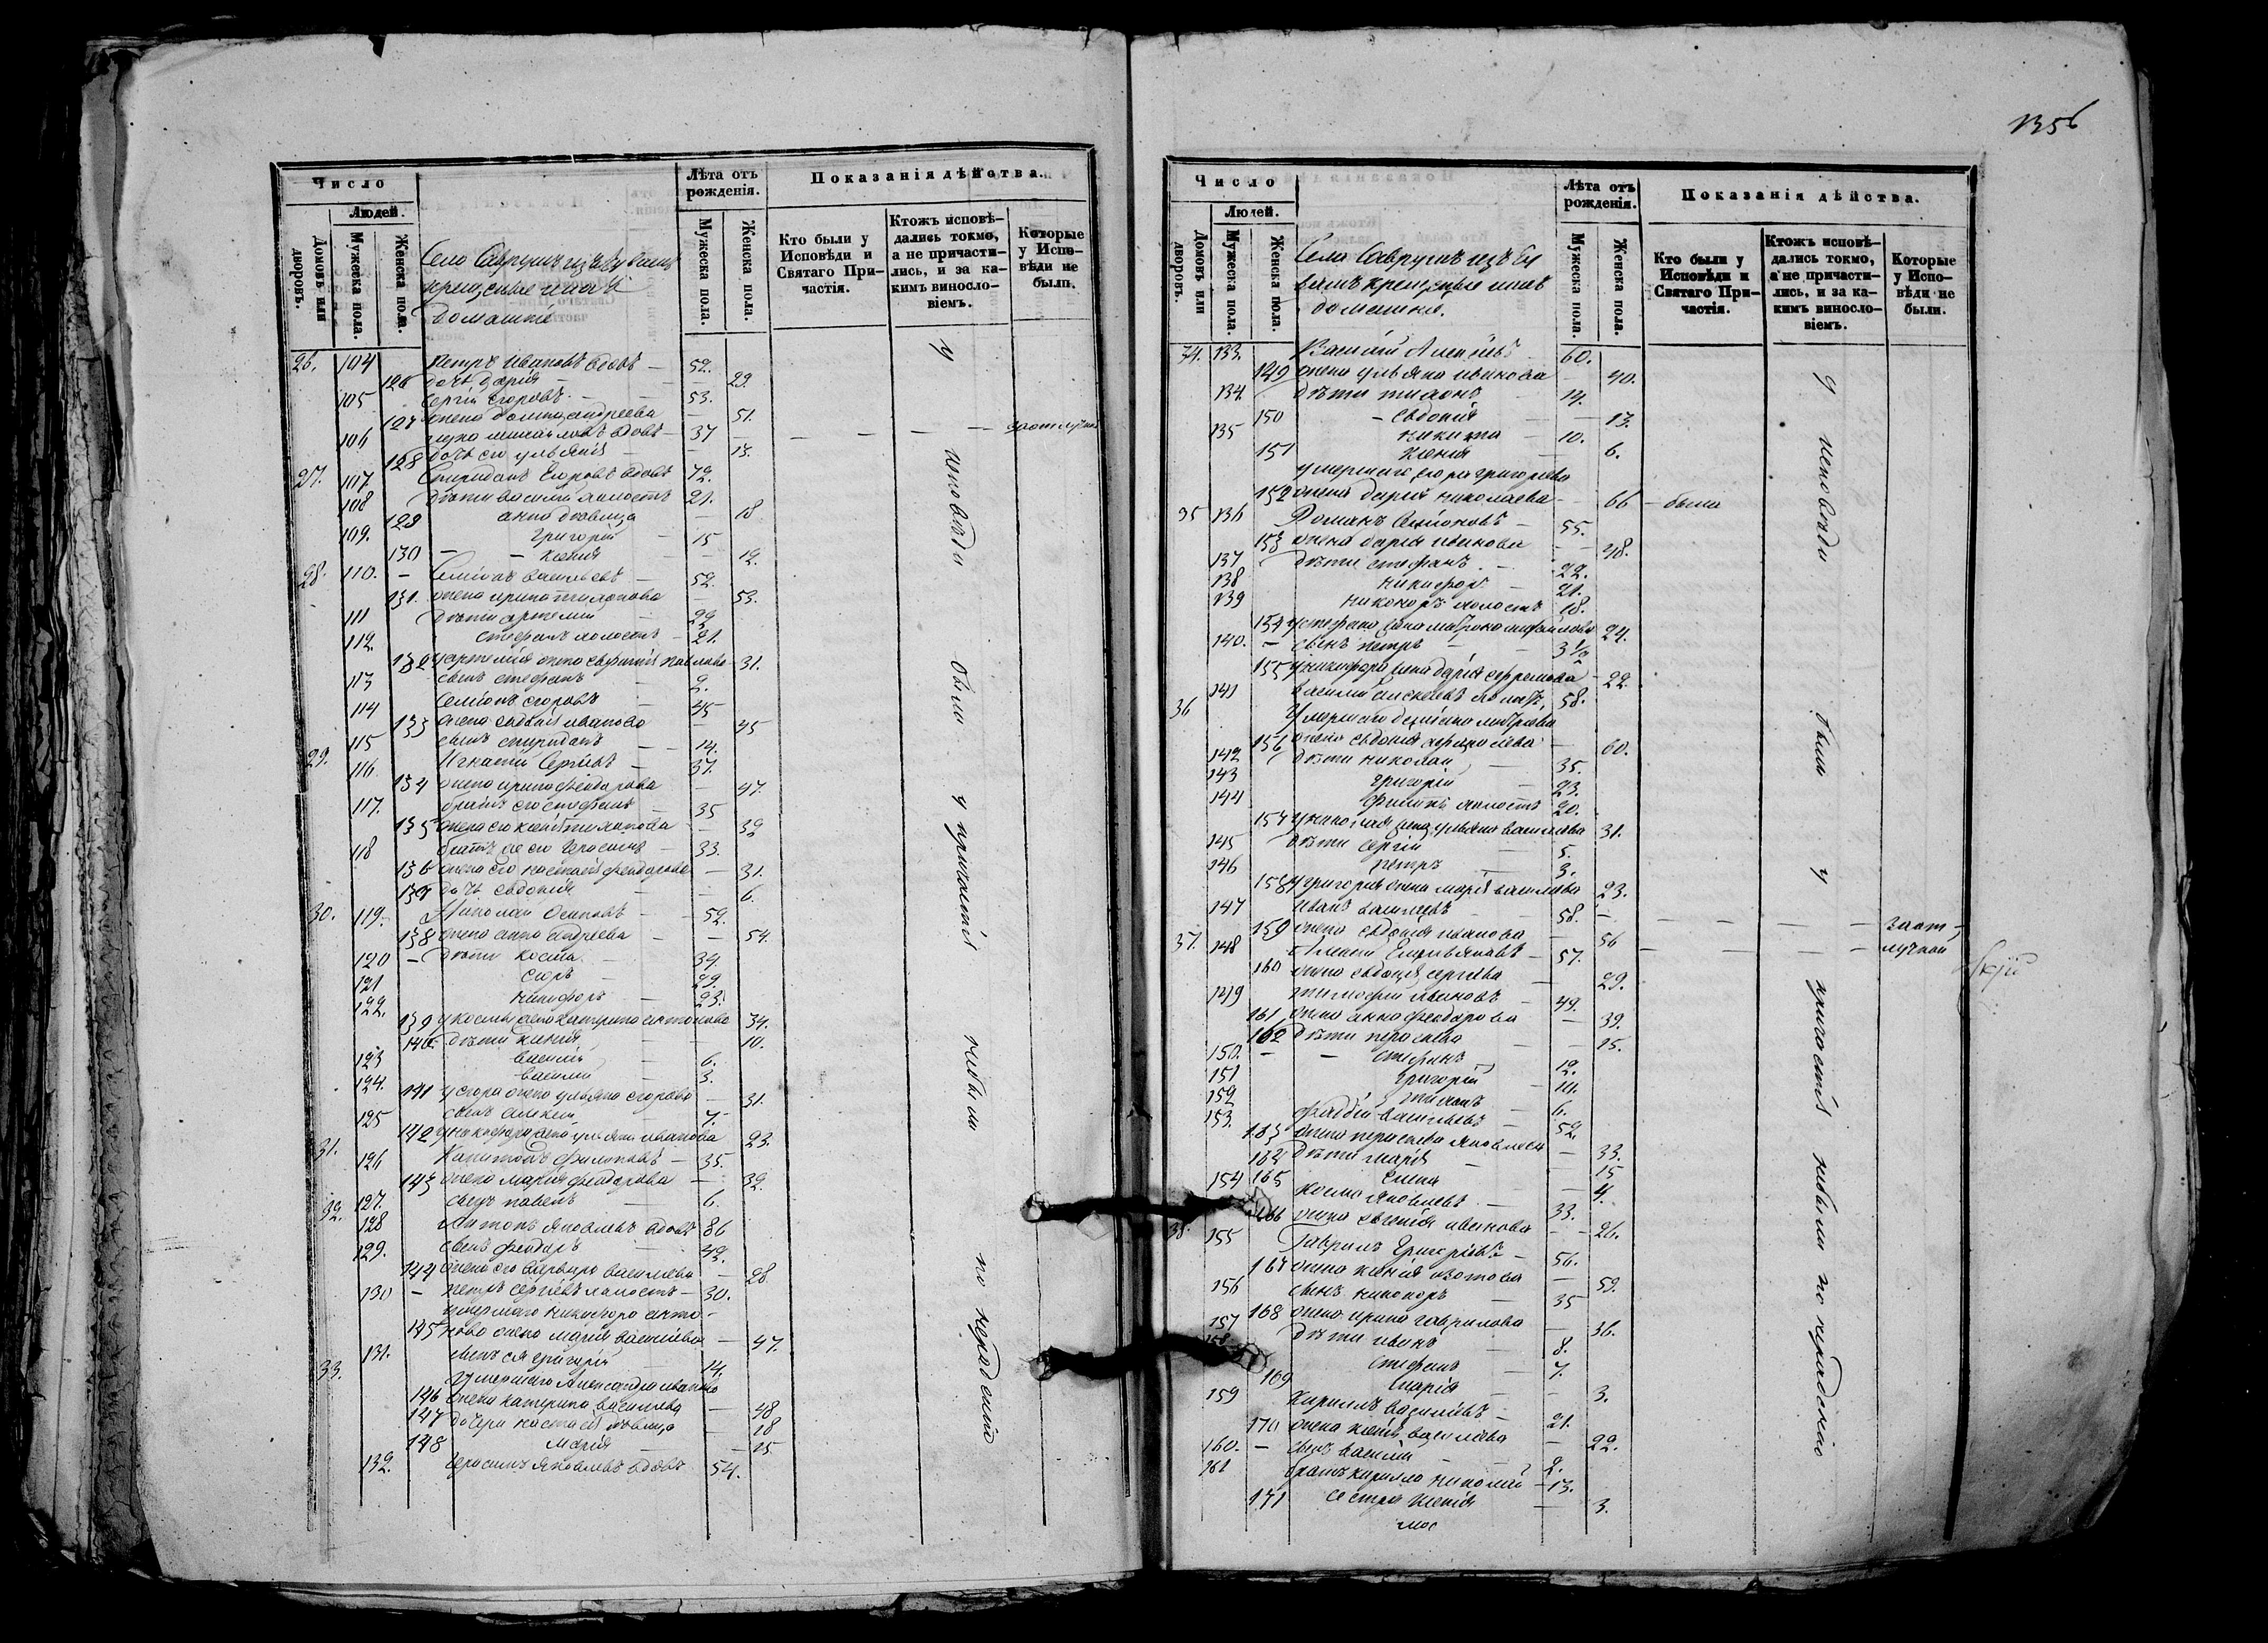 1356
Число
Людей.
Домовъ или дворовъ.
Мужеска пола.
Женска пола.
Село Саврушъ изъ
крещеные
домашніе
Лѣта отъ рожденія.
Мужеска пола.
Женска пола.
Показанія дѣйства.
Кто были у Исповѣди и Святаго Причастія.
Ктожъ исповѣдались токмо, а не причастились, и за какимъ винословіемъ.
Которые у Исповѣди не были.
26. 104 Петръ Ивановъ вдовъ — 52.
126 дочь дарія — 29.
105 Сергій Егоровъ — 53.
127 жена андреева — 51.
106 вдовъ — 37
128 дочь его ульянія — 13.
27. 107 Спиридонъ Егоровъ вдовъ 72.
108 дѣти василій холостъ 21.
129 анна дѣвица — 18
109. григорій — 15
130 — ксенія — 12.
28. 110. — Семіонъ васильевъ — 52.
131. жена ирина — 53.
111 дѣти артемій — 29
112. стефанъ холостъ — 21.
132 у артемія жена павлова 31.
113 сынъ стефанъ — 2.
114 Семіонъ егоровъ — 45
133 жена евдокія иванова — 45
115 сынъ спиридонъ — 14.
29. 116 Игнатій Сергіевъ — 37.
134 жена ирина феодорова — 47.
117. братъ его стефанъ — 35
135 жена его ксенія — 39
118 братъ его Герасимъ — 33.
136 жена его настасія феодорова — 31.
137 дочь евдокія — 6.
30. 119. Николай Осиповъ — 52.
138 жена анна андреева — 54.
120 — дѣти косма — 34.
121 егоръ — 29.
122. никифоръ — 23.
139 у космы жена катерина антонова 34.
140 дѣти ксенія — 10.
123 василій 6.
124. василій 3.
141 у егора жена ульяна егорова — 31.
125 сынъ алексей — 7.
142 у никифора жена ульяна иванова 23.
31. 126 Капитонъ филиповъ — 35.
143 жена марія феодорова — 32.
127. сынъ павелъ — 6.
32. 128 Антонъ яковлевъ вдовъ 86
129. сынъ феодоръ — 42.
144 жена его василіева — 28
130 — петръ сергіевъ холостъ — 30.
умершаго никифора анто-
145 нова жена марія василіева — 47.
131. сынъ ея григорій 14.
33. Умершаго Александра иванова
146 жена катерина василіева — 48
147 дочери настасія дѣвица — 18
148 марія — 15
132. Герасимъ яковлевъ вдовъ 54.
у исповѣди были у причастія небыли по нерадѣнію
Число
Людей.
Домовъ или дворовъ.
Мужеска пола.
Женска пола.
Село Саврушъ изъ
крещеные
домашніе.
Лѣта отъ рожденія.
Мужеска пола.
Женска пола.
Показанія дѣйства.
Кто были у Исповѣди и Святаго Причастія.
Ктожъ исповѣдались токмо, а не причастились, и за какимъ винословіемъ.
Которые у Исповѣди не были.
34. 133. Василій Алексѣевъ 60.
149 жена ульяна иванова — 40.
134 дѣти 14.
150 — евдокія 13.
135 никита — 10.
151 ксенія — 6.
умершаго егора григорьева
152 жена дарія николаева — 66 — была
35 136 Романъ — 55.
153 жена дарія иванова — 48.
137 дѣти стефанъ — 22.
138 никифоръ — 21.
139 никоноръ холостъ 18.
154 у стефана жена матрона михайлова 24.
140. — сынъ петръ — 3 1/2
155 у никифора жена дарія ефремова — 22.
36 141 Василій алексѣевъ 58.
Умершаго
156 жена евдокія — 60.
142 дѣти николай — 35.
143 григорій 23.
144 филипъ холостъ 20.
157 у николая жена ульяна василіева 31.
145 дѣти сергій 5.
146 петръ 3.
158 у григорія жена марія василіева 23.
147 Иванъ василіевъ — 58. —
159 жена евдокія иванова — 56
37. 148 Алексій Емельяновъ — 57.
160 жена евдокія сергіева — 29.
149 тимофей ивановъ — 49.
161 жена анна феодорова — 39.
162 дѣти — 15.
150. — — стефанъ 12.
151 григорій — 10.
152 6.
153. василіевъ — 52.
163 жена яковлева 33.
164 дѣти марія — 15
165 елена — 4.
154 косма яковлевъ — 33.
166 жена евгенія иванова — 26.
38. 155 Гаврилъ Григоріевъ — 56.
167 жена ксенія изотова — 59.
156 сынъ никоноръ — 35
168 жена ирина гаврилова — 36.
157 дѣти иванъ — 8.
158 стефанъ — 7.
169 марія — 3.
159 Кирилъ василіевъ — 21.
170 жена ксенія василіева — 22.
160. — сынъ василій — 2.
161 братъ кирилла николай — 13.
171 сестра ксенія — 3.
у исповѣди были у причастія небыли по нерадѣнію
заот-
лучкой